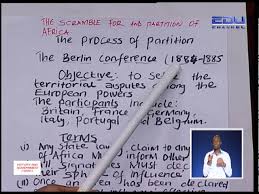 THE SCRAMBLE FOR AND PARTITION OF
AFRICA
EDU
CHANNEL
The Process of Partition
The Berlin Conference (1884-1885
Objective: To se the
territorial disputes among the
European Powers
The participants include:
Britain, France, Germany,
Italy, Portugal and Belgium.
Terms
(i) Any State law claim to any
of Africa M inform other
Signatories Must de
their sphere of influence
(ii) Once an area has been
declared